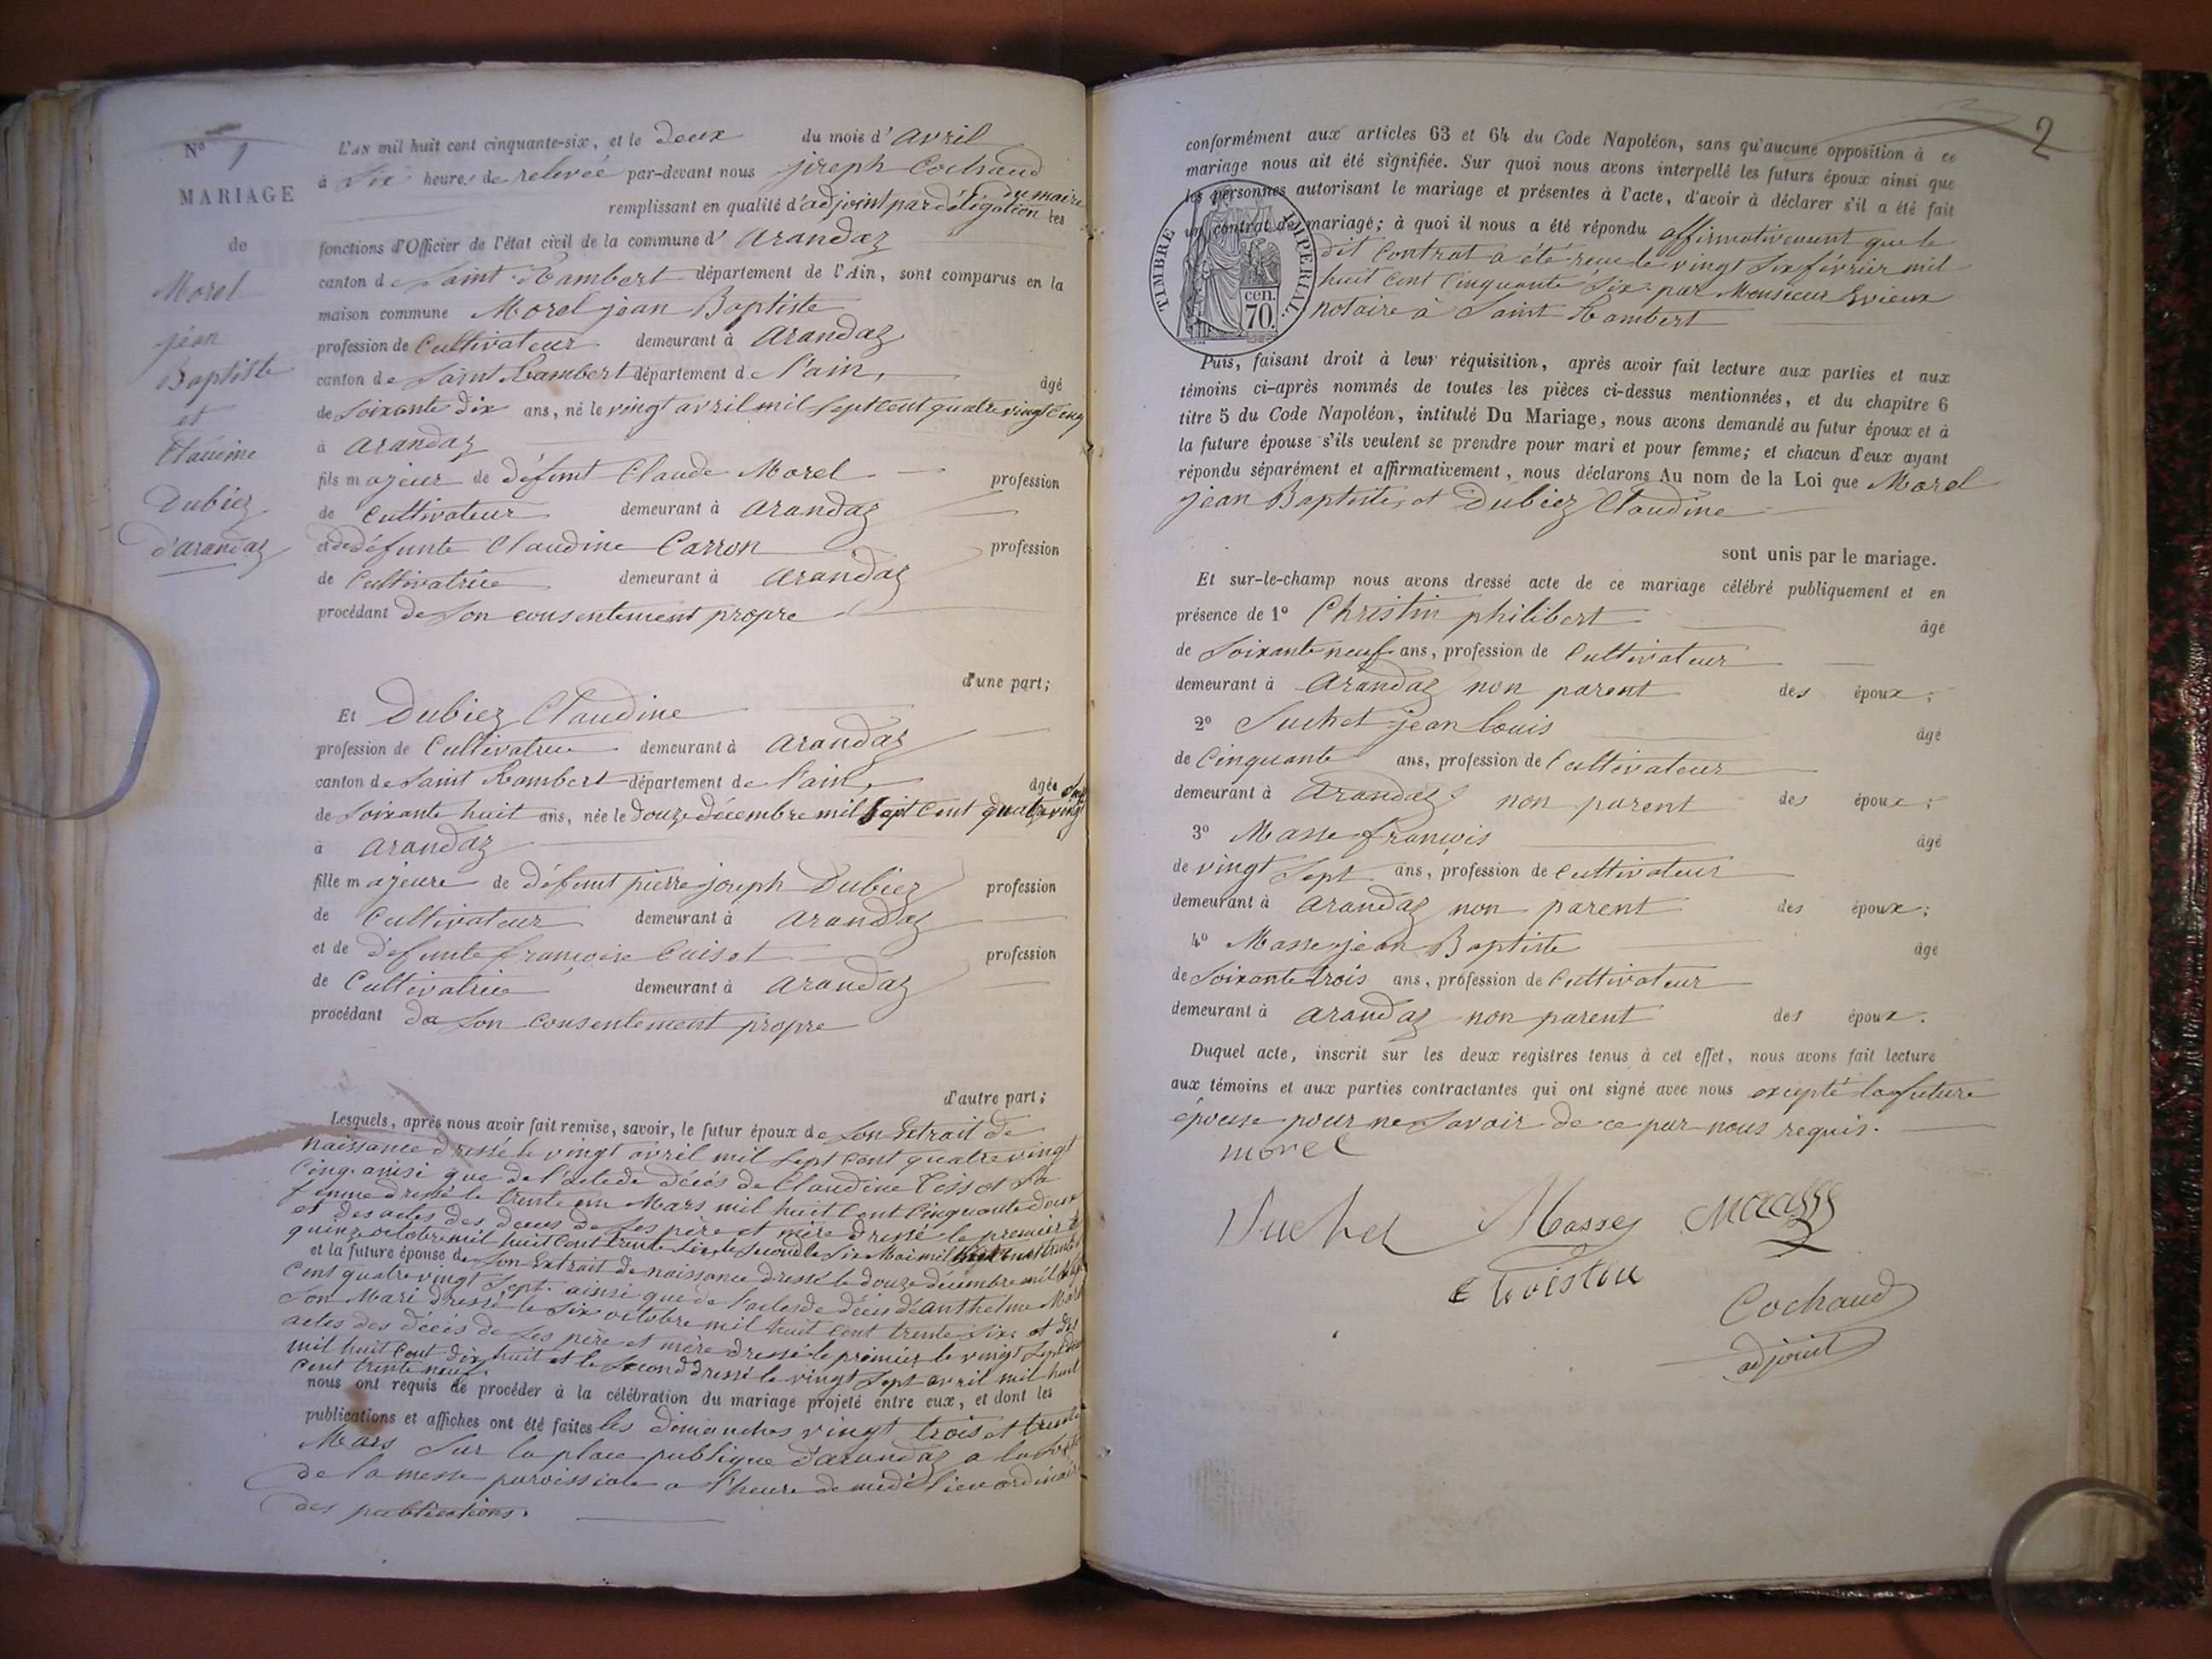 N° 1
MARIAGE
de
Morel
jean
Baptiste
et
Claudine
Dubiez
d'arandaz
L'AN mil huit cent cinquante-six, et le deux du mois d'avril
à six heures de relevée par-devant nous joseph Cochaud
remplissant en qualité d'adjoint par délégation du maire les
fonctions d'Officier de l'état civil de la commune d' arandaz
canton de Saint Rambert département de l'Ain, sont comparus en la
maison commune Morel jean Baptiste
profession de Cultivateur demeurant à arandaz
canton de Saint Rambert département de l'ain, âgé
de soixante dix ans, né le vingt avril mil sept cent quatre vingt cinq
à arandaz
fils majeur de défunt Claude Morel profession
de Cultivateur demeurant à arandaz
et de défunte Claudine Carron profession
de Cultivatrice demeurant à arandaz
procédant de son consentement propre
d'une part;
Et Dubiez Claudine
profession de Cultivatrice demeurant à arandaz
canton de Saint Rambert département de l'ain, âgée
de soixante huit ans, née le douze décembre mil sept cent quatre vingt sept
à arandaz
fille majeure de défunt pierre joseph Dubiez profession
de Cultivateur demeurant à arandaz
et de défunte françoise Cuisot profession
de Cultivatrice demeurant à arandaz
procédant de son consentement propre
d'autre part;
Lesquels, après nous avoir fait remise, savoir, le futur époux de son Extrait de
naissance dressé le vingt avril mil sept cent quatre vingt
cinq. ainsi que de l'acte de décés de Claudine Tissot sa
femme dressé le trente un Mars mil huit cent cinquante deux
et des actes des décés de ses père et mère dressé le premier le
quinze octobre mil huit cent trente six, le second le six Mai mil huit cent trente
et la future épouse de son Extrait de naissance dressé le douze décembre mil sept
cent quatre vingt sept. ainsi que de l'acte de décés d'anthelme
son Mari dressé le six octobre mil huit cent trente six. et des
actes des décés de ses père et mère dressé le premier le vingt sept
mil huit cent dix huit et le second dressé le vingt sept avril mil huit
cent trente neuf
nous ont requis de procéder à la célébration du mariage projeté entre eux, et dont les
publications et affiches ont été faites les dimanches vingt trois et trente
Mars sur la place publique d'arandaz a la sortie
de la messe paroissiale a l'heure de midi lieu ordinaire
des publications.
2
conformément aux articles 63 et 64 du Code Napoléon, sans qu'aucune opposition à ce
mariage nous ait été signifiée. Sur quoi nous avons interpellé les futurs époux ainsi que
les personnes autorisant le mariage et présentes à l'acte, d'avoir à déclarer s'il a été fait
un contrat de mariage; à quoi il nous a été répondu affirmativement que le
dit Contrat a été reçu le vingt six février mil
huit cent cinquante six par Monsieur Evieux
notaire à Saint Rambert
TIMBRE IMPERIAL.
cen.
70.
Puis, faisant droit à leur réquisition, après avoir fait lecture aux parties et aux
témoins ci-après nommés de toutes les pièces ci-dessus mentionnées, et du chapitre 6
titre 5 du Code Napoléon, intitulé Du Mariage, nous avons demandé au futur époux et à
la future épouse s'ils veulent se prendre pour mari et pour femme; et chacun d'eux ayant
répondu séparément et affirmativement, nous déclarons Au nom de la Loi que Morel
jean Baptiste, et Dubiez Claudine
sont unis par le mariage.
Et sur-le-champ nous avons dressé acte de ce mariage célébré publiquement et en
présence de 1° Christin philibert âgé
de soixante neuf ans, profession de Cultivateur
demeurant à arandaz non parent des époux;
2° Suchet jean louis âgé
de Cinquante ans, profession de Cultivateur
demeurant à arandaz non parent des époux;
3° Masse françois âgé
de vingt sept ans, profession de Cultivateur
demeurant à arandaz non parent des époux;
4° Masse jean Baptiste âgé
de soixante trois ans, profession de Cultivateur
demeurant à arandaz non parent des époux.
Duquel acte, inscrit sur les deux registres tenus à cet effet, nous avons fait lecture
aux témoins et aux parties contractantes qui ont signé avec nous excepté la future
épouse pour ne savoir de ce par nous requis.
morel
Suchet Masse
Cochaud
adjoint